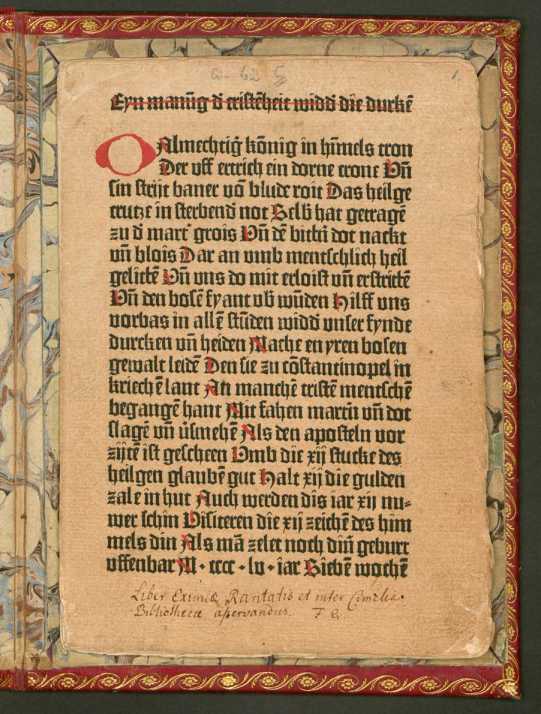 Eyn manūg d̄ cristēheit widd̄ die durkē
O Almechtig kōnig in hīmels tron
Der uff ertrich ein dorne crone Vn̄
sin strijt baner vō blude roit Das heilge
crutze in sterbend̄ not Selb̄ hat getragē
zu d̄ mart̄ grois Vn̄ dē bittn̄ dot nackt
vn̄ blois Dar an vmb mentschlich heil
gelittē Vn̄ vns do mit erloist vn̄ erstrittē
Vn̄ den bosē fyant vb̄ wūden Hilff vns
vorbas in allē stūden widd̄ vnser fynde
durcken vn̄ heiden Mache en yren bosen
gewalt leidē Den sie zu cōstantinopel in
kriechē lant An manchē tristē mentschē
begangē hant Mit fahen martn̄ vn̄ dot
slagē vn̄ v̄smehē Als den aposteln vor
zijtē ist gescheen Vmb die xij stucke des
heilgen glaubē gut Halt xij die gulden
zale in hut Auch werden dis iar xij nu-
wer schin Visiteren die xij zeichē des him
mels din Als mā zelet noch din̄ geburt
uffenbar M • cccc • lv • iar Siebē wochē
Liber Eximiæ Raritatis et inter Cimelia
Bibliothecæ asservandus.